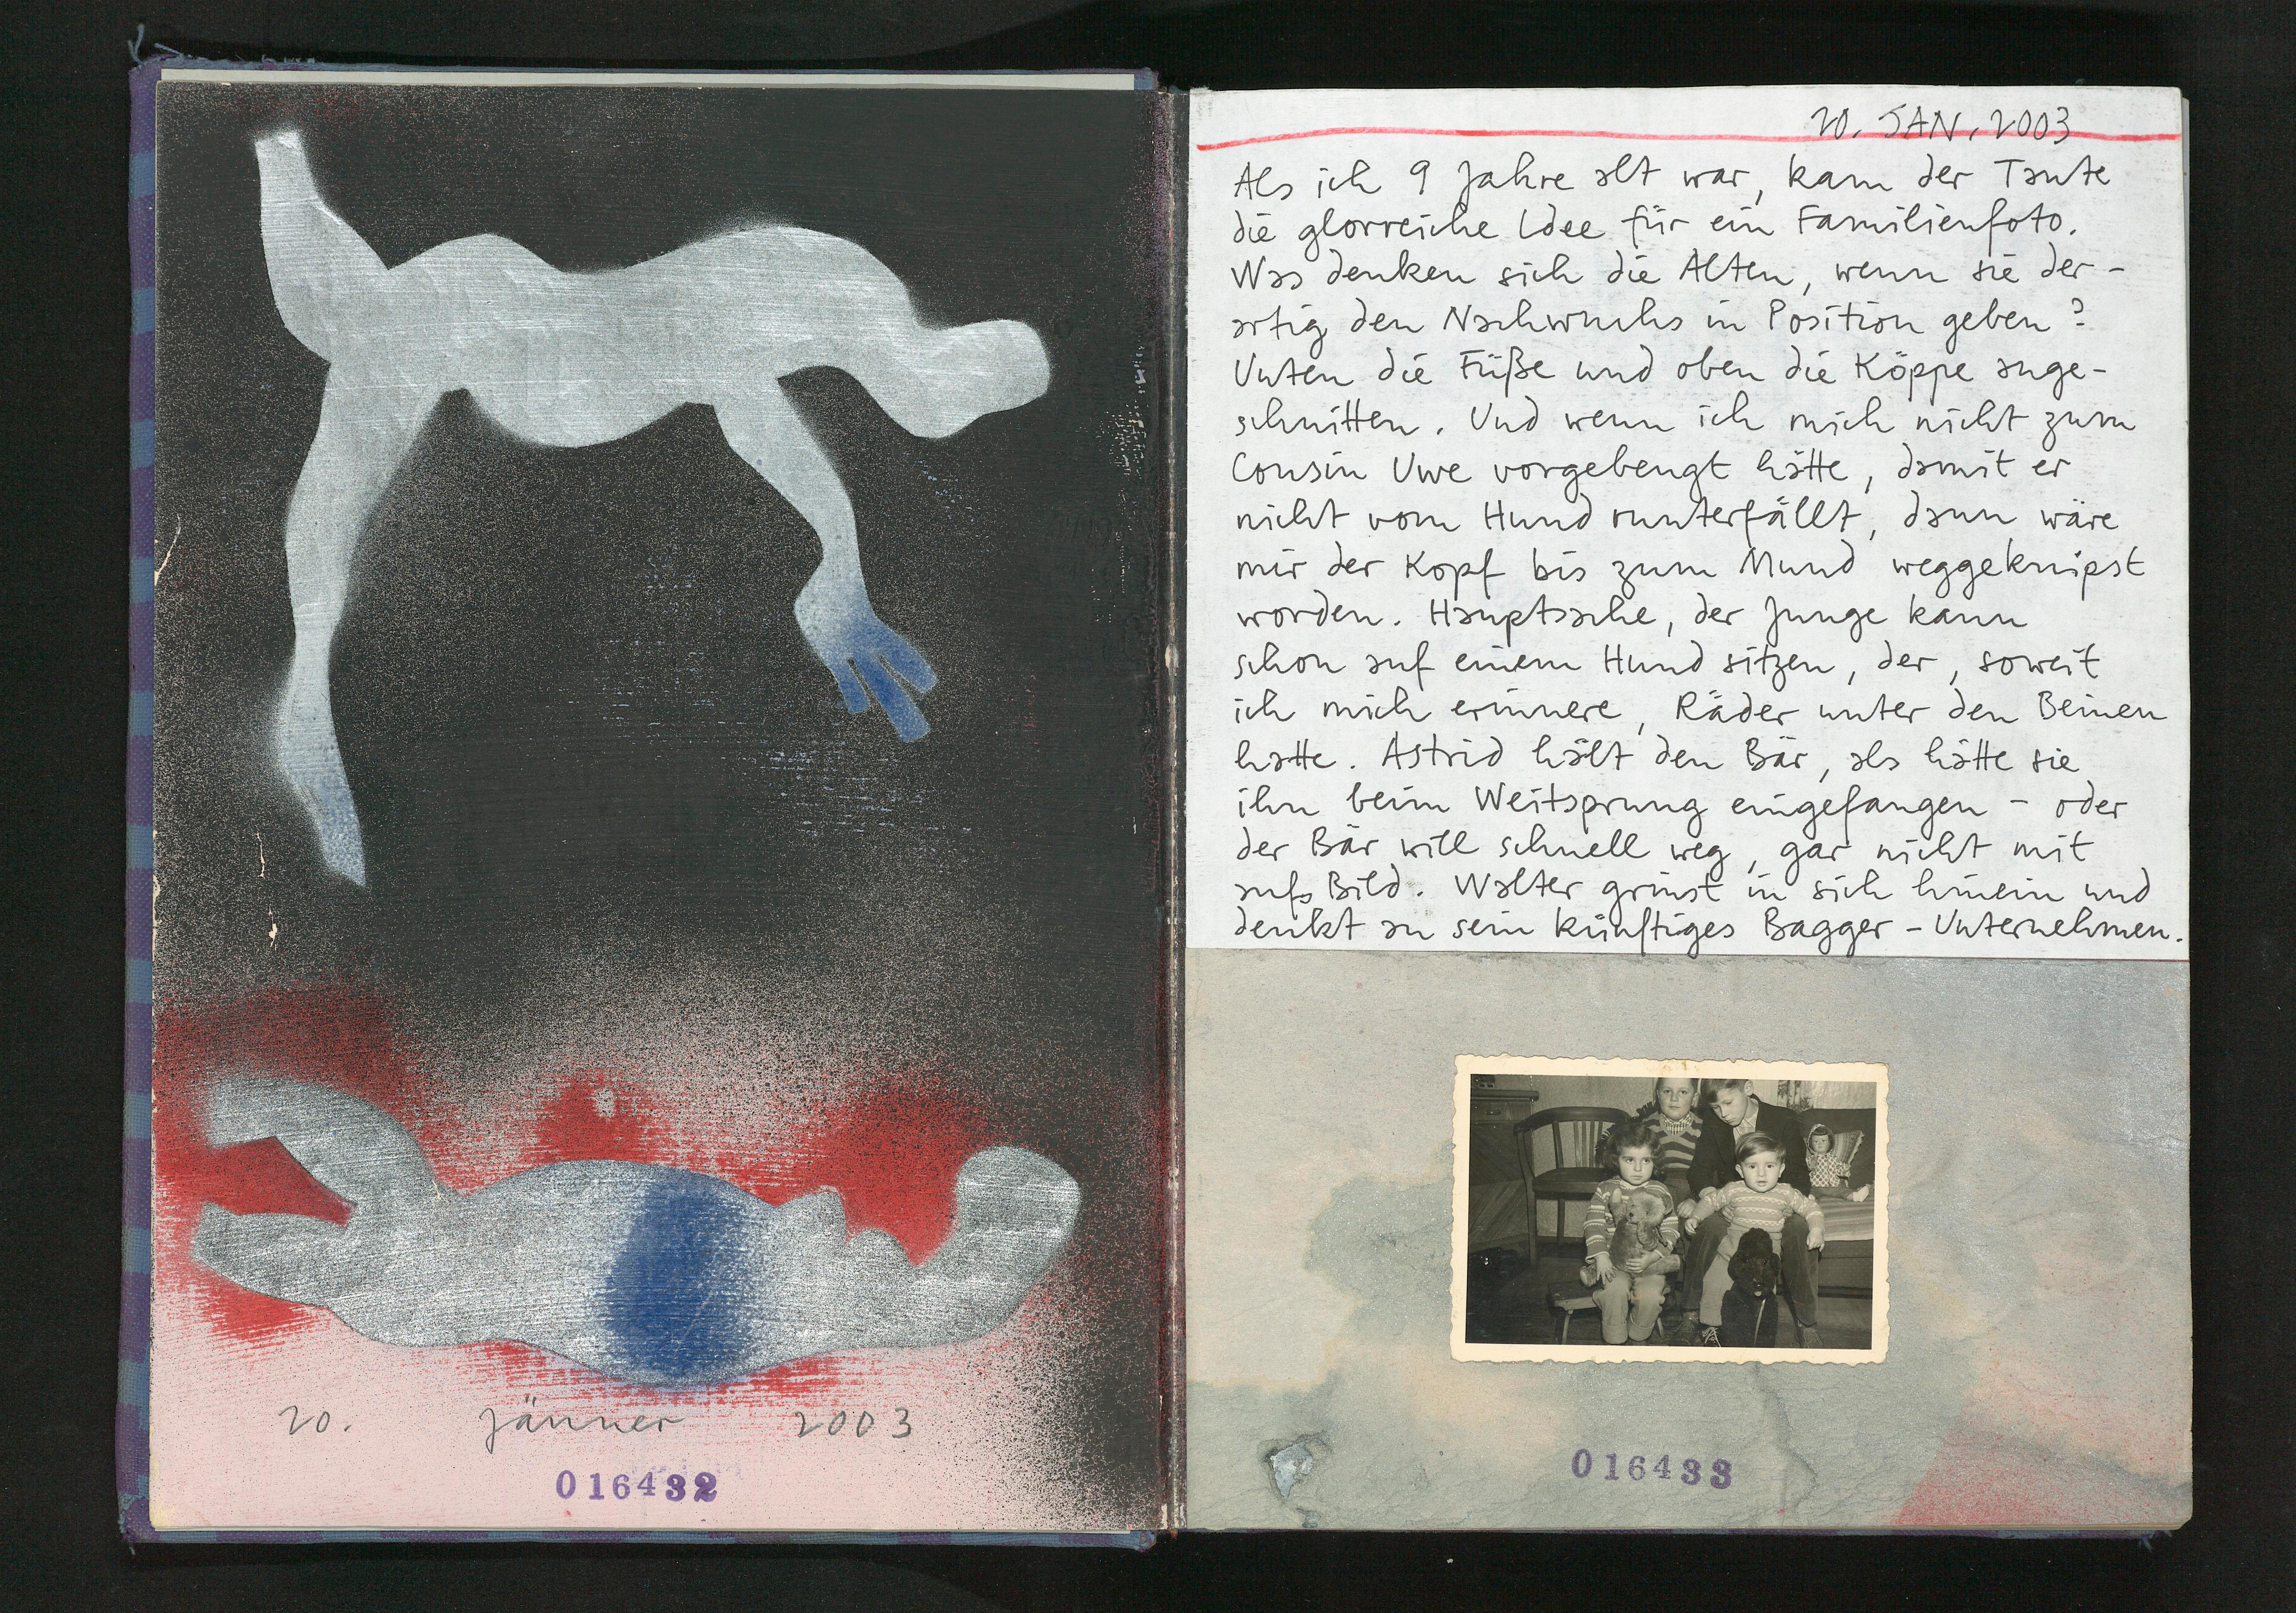 20. Jänner 2003
016432
20. JAN. 2003
Als ich 9 Jahre alt war, kam der Tante
die glorreiche Idee für ein Familienfoto.
Was denken sich die Alten, wenn sie der-
artig den Nachwuchs in Position geben?
Unten die Füße und oben die Köppe ange-
schnitten. Und wenn ich mich nicht zum
Cousin Uwe vorgebeugt hätte, damit er
nicht vom Hund runterfällt, dann wäre
mir der Kopf bis zum Mund weggeknipst
worden. Hauptsache, der Junge kann
schon auf einem Hund sitzen, der, soweit
ich mich erinnere, Räder unter den Beinen
hatte. Astrid hält den Bär, als hätte sie
ihn beim Weitsprung eingefangen - oder
der Bär will schnell weg, gar nicht mit
aufs Bild. Walter grinst in sich hinein und
denkt an sein künftiges Bagger-Unternehmen.
016433